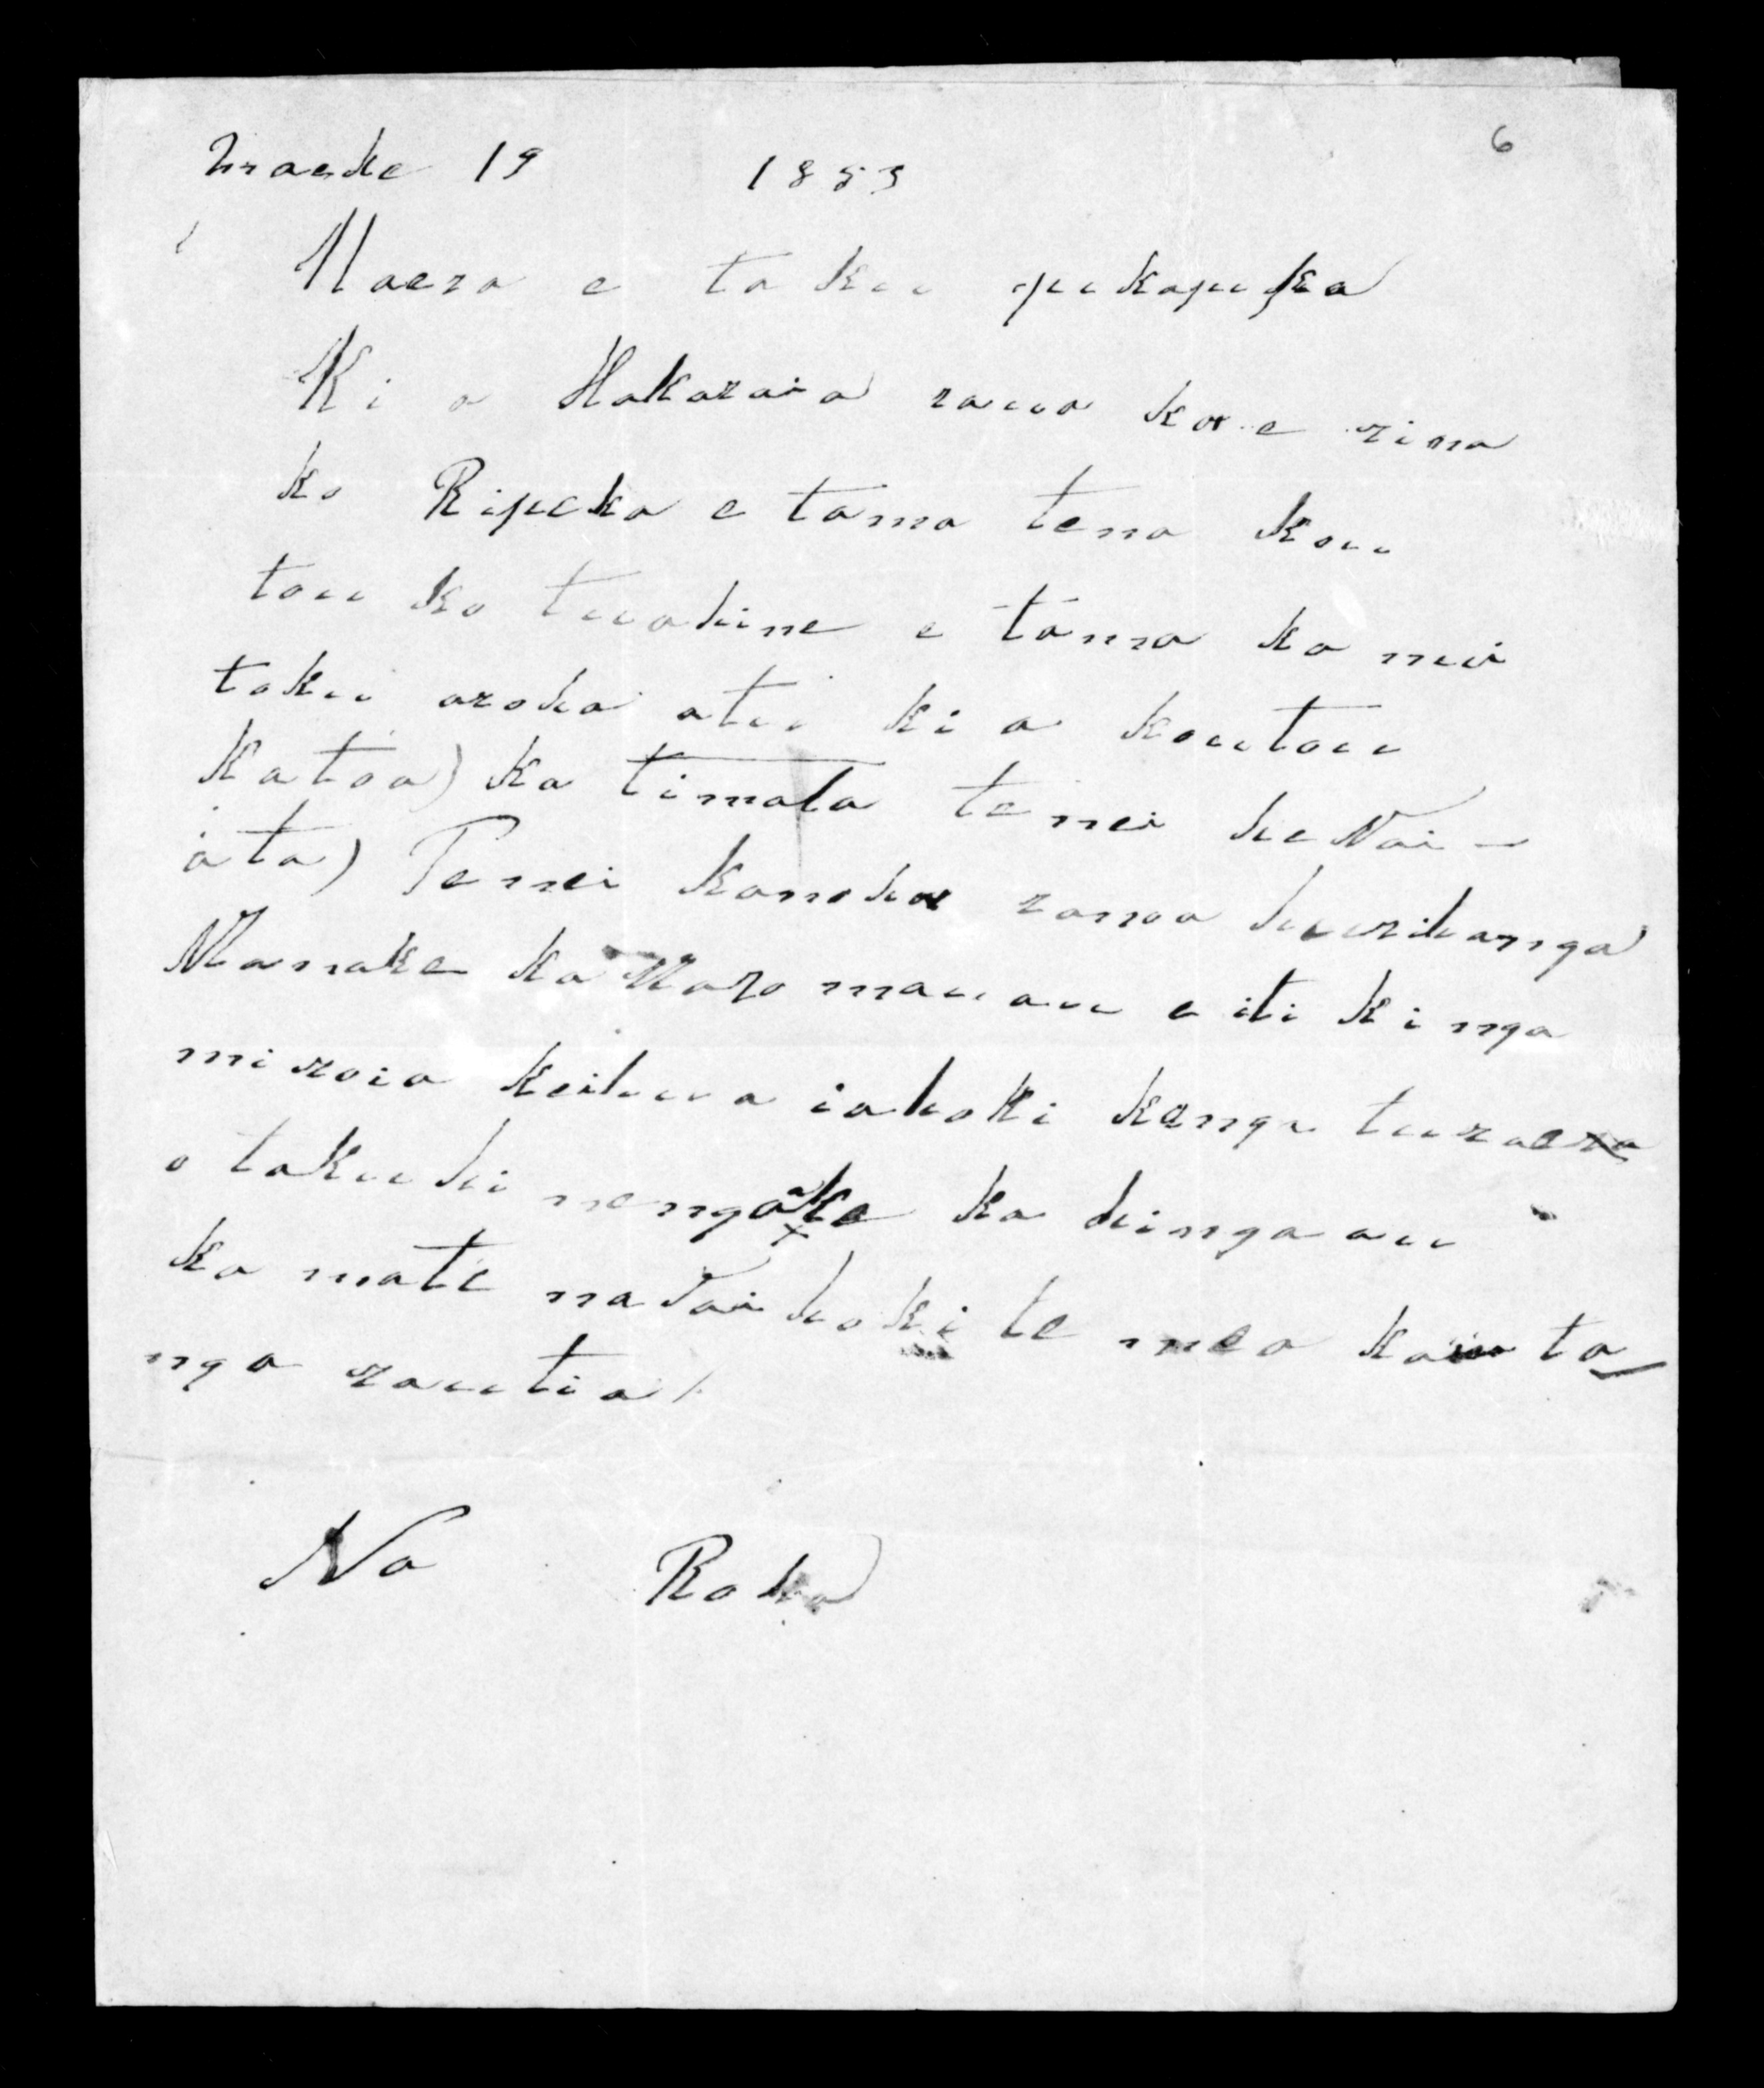 maehe 19 1853 6
Haera e taku pukapuka
Ki a Hakaraia raua ko e rina
ko Ripeka e tama tena kou
tou ko tuahine e tama ka nui
taku aroha atu ki a koutou
Katoa) ka timata tenei he Wai-
ata) Tenei kanoha ranoa hurihanga
Manake ka Maro mau au e iti ki nga
miroia keihua iahoki kenga turaera
o taku hi nengaake ka hinga au
ka mate na Tai hoki te mea ka ta
nga rautia
Na Roha